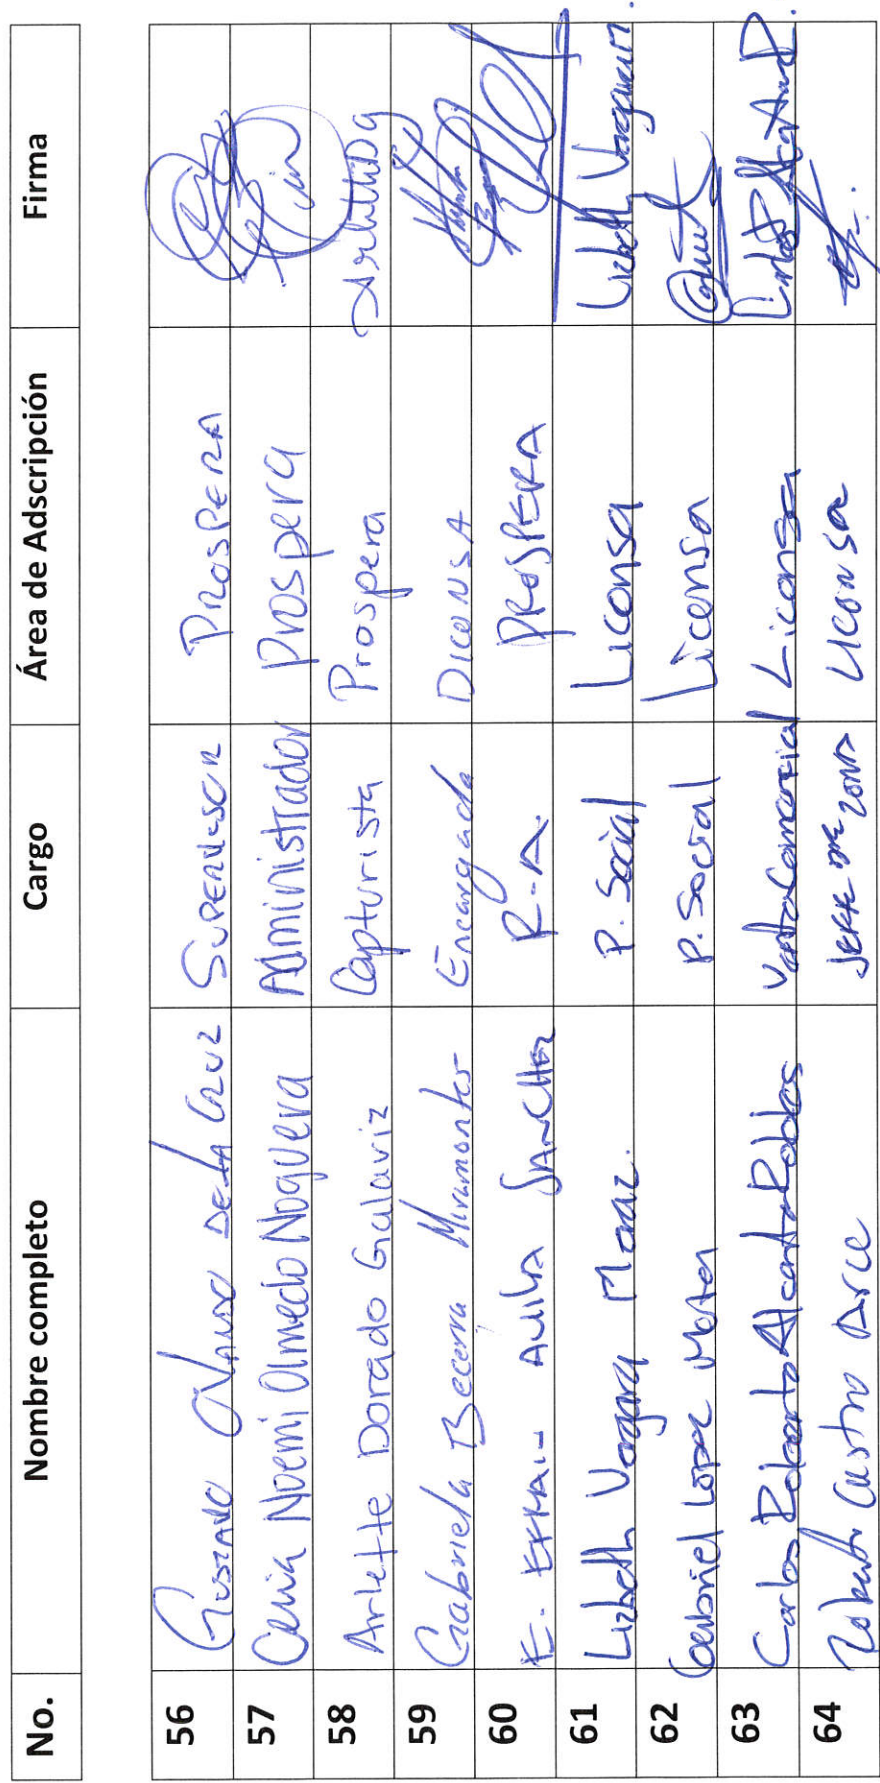 No. Nombre completo Cargo Área de Adscripción Firma
56 Gustavo De La Cruz Supervisor Prospera
57 Noemi Olmedo Noguera Administrador Prospera
58 Arlette Dorado Galaviz Capturista Prospera ArletteDG
59 Gabriela Becerra Miramontes Encargada DICONSA
60 E. Avila Sanchez R.A. PROSPERA
61 Lizbeth Vergara P. Social Liconsa Lizbeth Vergara
62 Gabriel Lopez P. Social Liconsa
63 Carlos Roberto Alcantar Robles Liconsa
64 Roberto Castro Arce Jefe de zona Liconsa